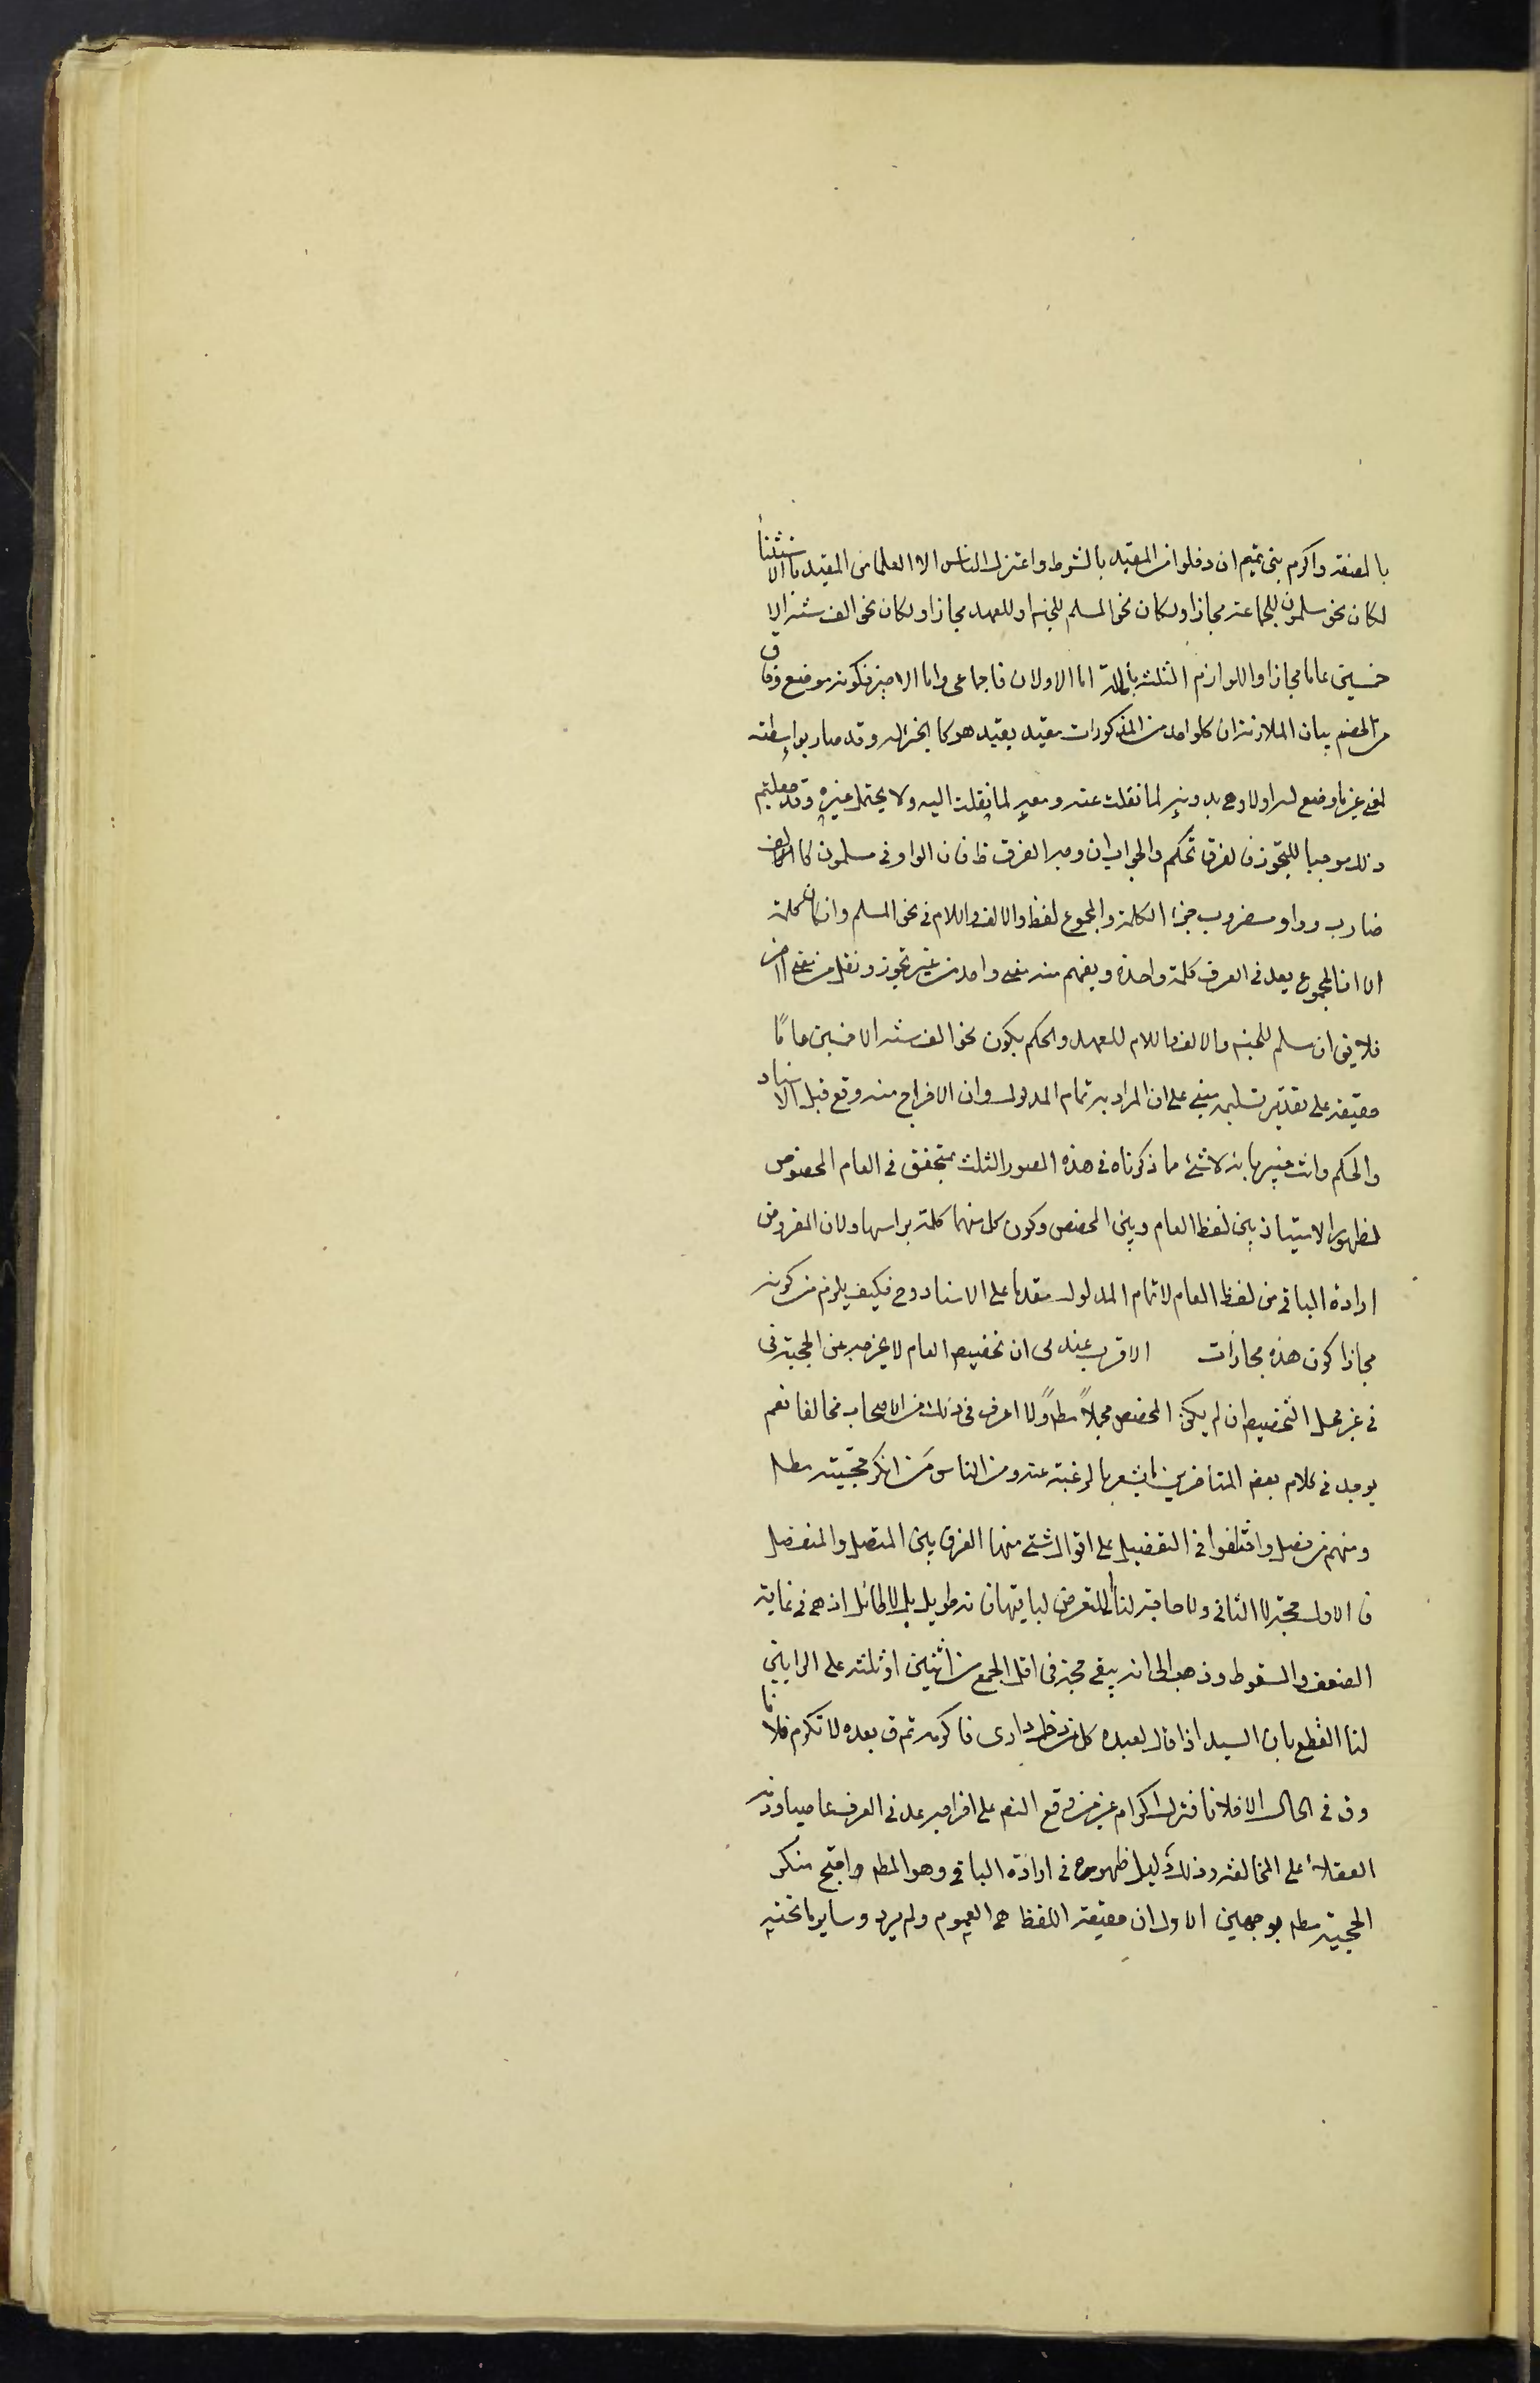 بالصفة واكرم بنى تميم ان دخلوا من المقيد بالشرط واعتزل الناس الا العلماء من المقيد بالاستثناء
لكان نحو مسلمون للجماعة مجازا ولكان نحو المسلم للجنس او للعهد مجازا ولكان نحو الف سنة الا
خمسين عاما مجازا واللوازم الثلث باطلة اما الاولان فاجماعى واما الاخير فلكونه موضع وفاق
من الخصم بيان الملازمة ان كل واحد من المذكورات مقيد بقيد هو كالجزء له وقد صار بواسطته
لمعنى غير ما وضع له اولا وهى بدونه لما نقلت عنه ومعه لما نقلت اليه ولا يحتمل غيره وقد جعلتم
ذلك موجبا للتجوز فالفرق تحكم والجواب ان وجه الفرق ظ فان الواو فى مسلمون كالالف
ضارب وواو مضروب جزء الكلمة والمجموع لفظ والالف واللام فى نحو المسلم وان كان كلمة
الا ان المجموع يعد فى العرف كلمة واحدة ويفهم منه معنى واحد من غير تجوز ونقل من معنى الى آخر
فلا يق ان مسلم للجنس والالف واللام للعهد والحكم بكون نحو الف سنة الا خمسين عامًا
حقيقة على تقدير تسليمه مبنى على ان المراد به تمام المدلول وان الاخراج منه وقع قبل الاسناد
والحكم وانت خبير بانه لا شئ مما ذكرناه فى هذه الصور الثلث بمتحقق فى العام المخصوص
لظهور الامتياز بين لفظ العام وبين المخصص وكون كل منهما كلمة براسها ولان المفروض
ارادة الباقى من لفظ العام لا تمام المدلول مقدما على الاسناد وح فكيف يلزم من كونه
مجازا كون هذه مجازات الاقرب عندى ان تخصيص العام لا يخرجه عن الحجية فى
فى غير محل التخصيص ان لم يكن المخصص مجملاً مطـ ولا اعرف فى ذلك من الاصحاب مخالفا نعم
يوجد فى كلام بعض المتأخرين ما يشعر بالرغبة عنه ومن الناس مَن انكر حجيته مطـ
ومنهم من فصل واختلفوا فى التفصيل على اقوال شتى منها الفرق بين المتصل والمنفصل
فالاول حجة لا الثانى ولا حاجة لنا للتعرض لباقيها فانه طويل بلا طائل اذ هى فى غاية
الضعف والسقوط وذهب الى انه يبقى حجة فى اقل الجمع من اثنين او ثلثة على الرايين
لنا القطع بان السيد اذا قال لعبده كل من دخل دارى فاكرمه ثم ق بعده لا تكرم فلانا
وق فى الحال الا فلانا فترك اكرام غير من وقع النص على اخراجه عد فى العرف عاصيا وذمه
العقلاء على المخالفة وذلك دليل ظهوره فى ارادة الباقى وهو المط واحتج منكر
الحجية مطـ بوجهين الاول ان حقيقة اللفظ هى العموم ولم يرد وساير ما تحته